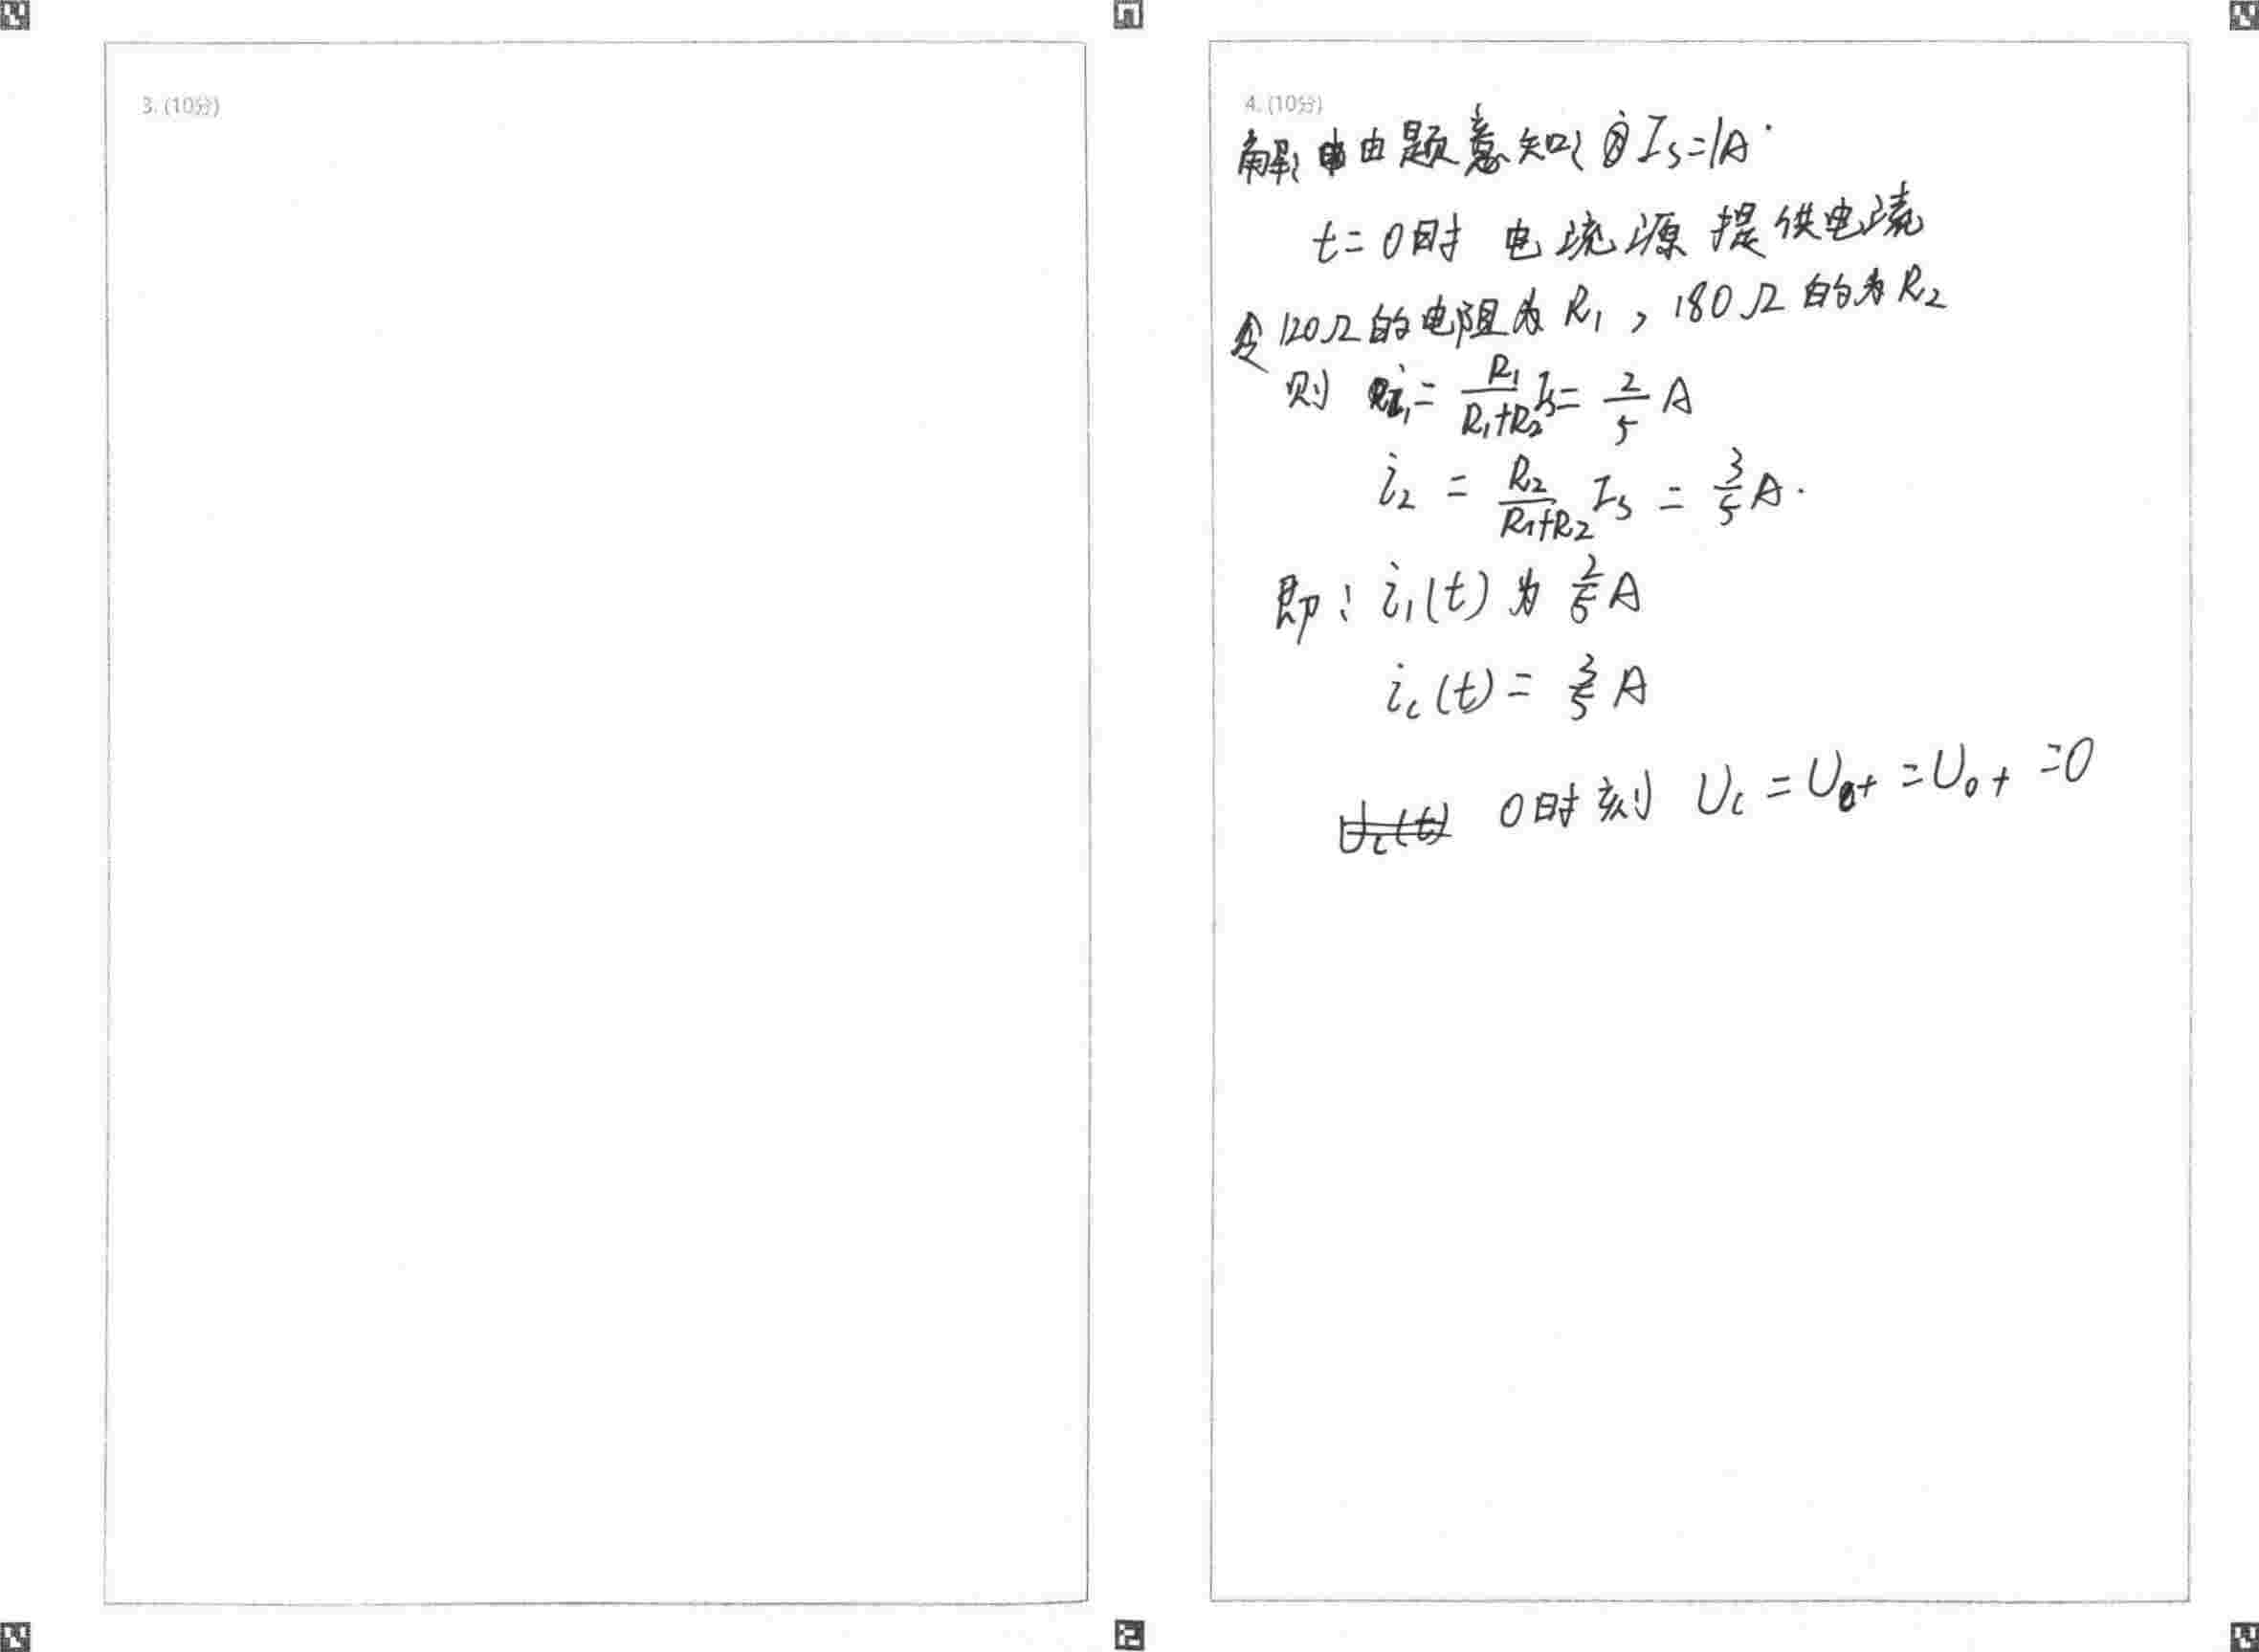 3. (10分)
4. (10分)
解: 由题意知: Is=1A.
t=0时 电流源提供电流
令120Ω的电阻为R₁, 180Ω的为R₂
则 i₁= R₁/(R₁+R₂) Is= 2/5 A
i₂ = R₂/(R₁+R₂) Is = 3/5 A.
即: i₁(t) 为 2/5 A
i_c(t) = 3/5 A
0时刻 U_c = U₀₊ = U₀₊ =0